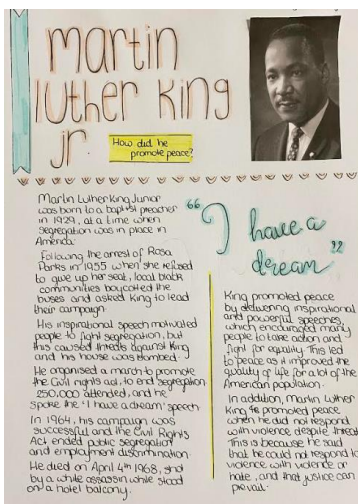 martin
luther king
jr.
How did he
promote peace?
Martin Luther King Junior
was born to a baptist preacher
in 1929, at a time when
segregation was in place in
America.
Following the arrest of Rosa
Parks in 1955 when she refused
to give up her seat, local black
communities boycotted the
buses and asked King to lead
their campaign.
His inspirational speech motivated
people to fight segregation, but
this caused threats against King
and his house was bombed.
He organised a march to promote
the Civil rights act, to end segregation
250,000 attended, and he
spoke the 'I have a dream' speech
In 1964, his campaign was
successful and the Civil Rights
Act ended public segregation
and employment discrimination.
He died on April 4th 1968, shot
by a white assassin while stood
on a hotel balcony.
"I have a
dream"
King promoted peace
by delivering inspirational
and powerful speeches,
which encouraged many
people to take action and
fight for equality. This led
to peace as it improved the
quality of life for a lot of the
American population.
In addition, Martin Luther
King promoted peace
when he did not respond
with violence, despite threats
This is because he said
that he could not respond to
violence with violence or
hate, and that justice can
prevail.